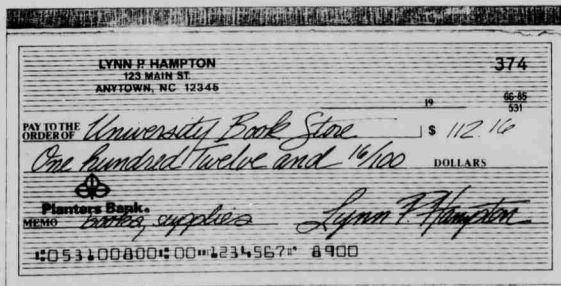 LYNN P. HAMPTON
123 MAIN ST.
ANYTOWN, NC 12345
374
19
66-85
531
PAY TO THE
ORDER OF University Book Store $ 112.16
One hundred twelve and 16/100 DOLLARS
Planters Bank
MEMO books, supplies Lynn P. Hampton
⑆053100800⑆00⑈1234567⑈ 8900